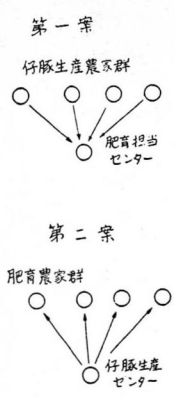 第一案
仔豚生産農家群
肥育担当
センター
第二案
肥育農家群
仔豚生産
センター